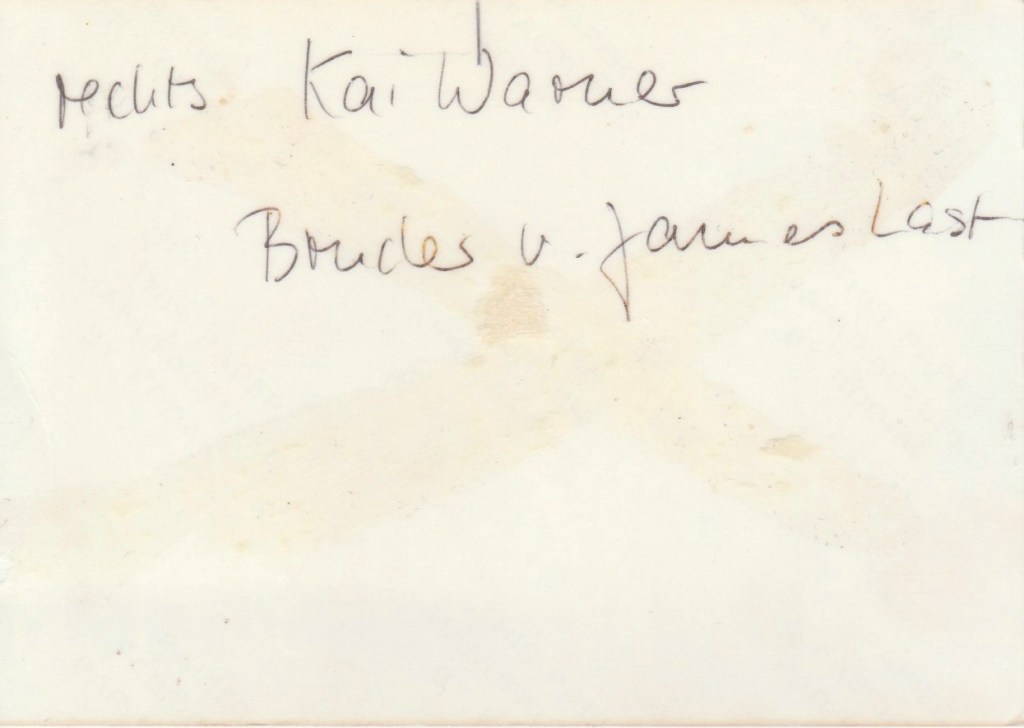 rechts Kai Warner
Bruder v. James Last